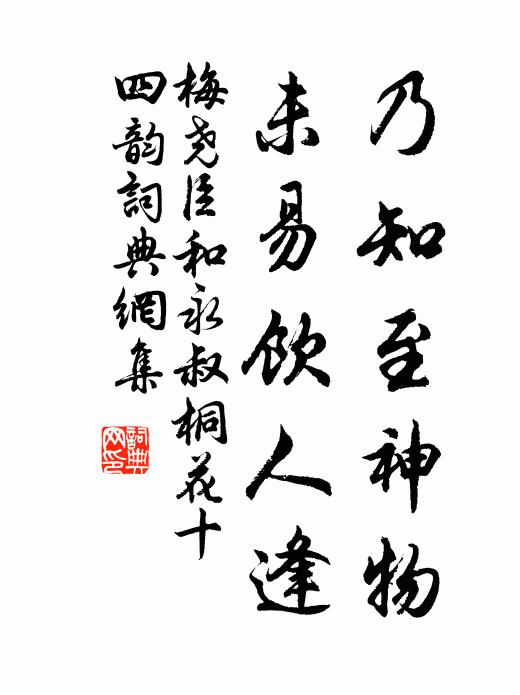 乃知至神物
未易飲人逢
梅尧臣和永叔桐花十
四韵詞典網集
詞典
网印